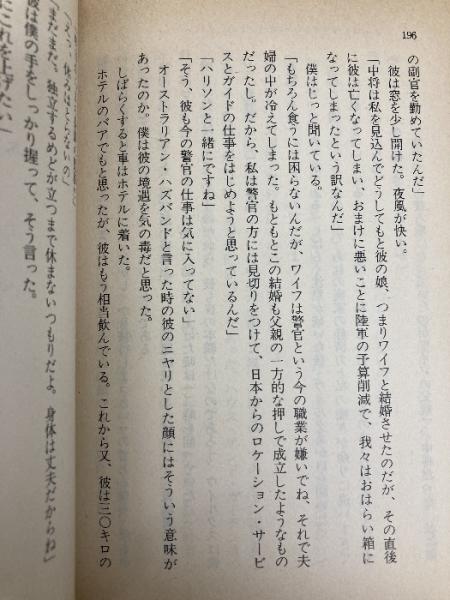 196
の副官を勤めていたんだ」
彼は窓を少し開けた。夜風が快い。
「中将は私を見込んでどうしてもと彼の娘、つまりワイフと結婚させたのだが、その直後
に彼は亡くなってしまい、おまけに悪いことに陸軍の予算削減で、我々はおはらい箱に
なってしまったという訳なんだ」
僕はじっと聞いている。
「もちろん食うには困らないんだが、ワイフは警官という今の職業が嫌いでね、それで夫
婦の中が冷えてしまった。もともとこの結婚も父親の一方的な押しで成立したようなもの
だったし。だから、私は警官の方には見切りをつけて、日本からのロケーション・サービ
スとガイドの仕事をはじめようと思っているんだ」
「ハリソンと一緒にですね」
「そう、彼も今の警官の仕事は気に入ってない」
オーストラリアン・ハズバンドと言った時の彼のニヤリとした顔にはそういう意味が
あったのか。僕は彼の境遇を気の毒だと思った。
しばらくすると車はホテルに着いた。
ホテルのバアでもと思ったが、彼はもう相当飲んでいる。これから又、彼は三〇キロの
「まだまだ、独立するめどが立つまで休まないつもりだよ。身体は丈夫だからね」
彼は僕の手をしっかり握って、そう言った。
にこれを上げたい」